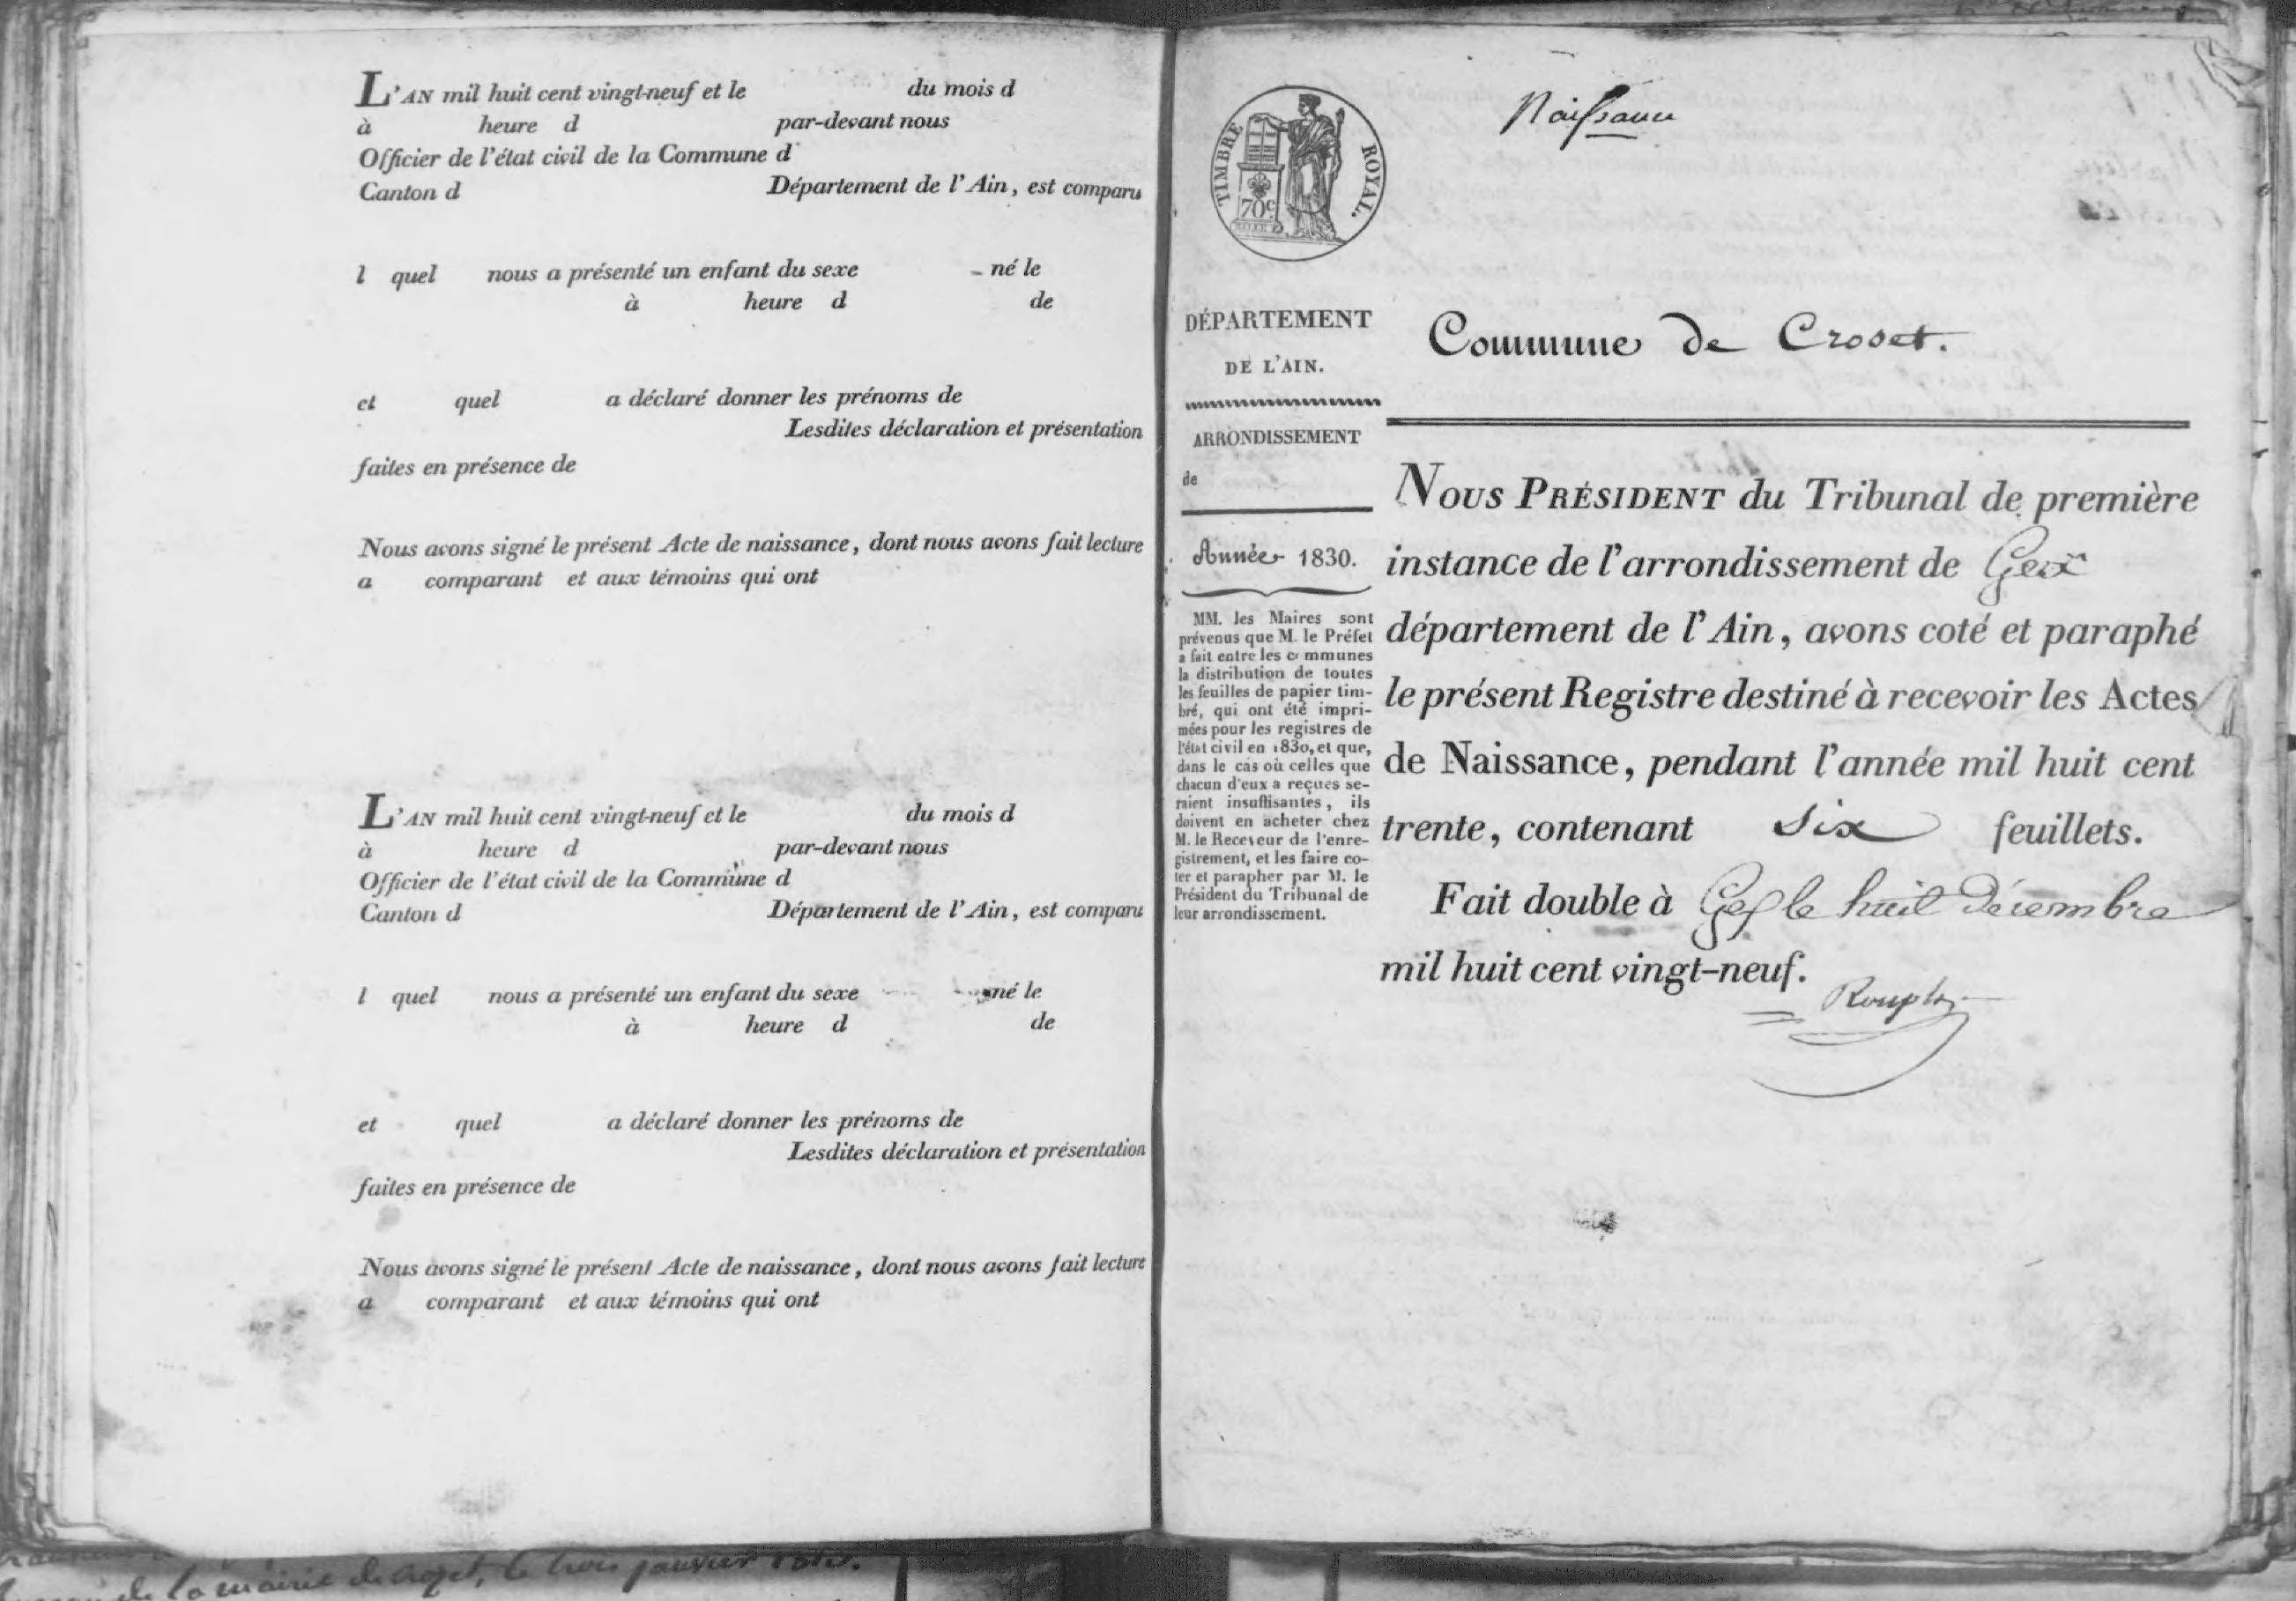 L'AN mil huit cent vingt-neuf et le du mois d
à heure d par-devant nous
Officier de l'état civil de la Commune d
Canton d Département de l'Ain, est comparu
l quel nous a présenté un enfant du sexe né le
à heure d de
et quel a déclaré donner les prénoms de
Lesdites déclaration et présentation
faites en présence de
Nous avons signé le présent Acte de naissance, dont nous avons fait lecture
a comparant et aux témoins qui ont
L'AN mil huit cent vingt-neuf et le du mois d
à heure d par-devant nous
Officier de l'état civil de la Commune d
Canton d Département de l'Ain, est comparu
l quel nous a présenté un enfant du sexe né le
à heure d de
et quel a déclaré donner les prénoms de
Lesdites déclaration et présentation
faites en présence de
Nous avons signé le présent Acte de naissance, dont nous avons fait lecture
a comparant et aux témoins qui ont
de la mairie de Crozet, le trois janvier
Naissance
TIMBRE ROYAL.
70c
DÉPARTEMENT
DE L'AIN.
ARRONDISSEMENT
de
Année 1830.
MM. les Maires sont
prévenus que M. le Préfet
a fait entre les communes
la distribution de toutes
les feuilles de papier tim-
bré, qui ont été impri-
mées pour les registres de
l'état civil en 1830, et que,
dans le cas où celles que
chacun d'eux a reçues se-
raient insuffisantes, ils
doivent en acheter chez
M. le Receveur de l'enre-
gistrement, et les faire co-
ter et parapher par M. le
Président du Tribunal de
leur arrondissement.
Commune de Croset.
NOUS PRÉSIDENT du Tribunal de première
instance de l'arrondissement de Gex
département de l'Ain, avons coté et paraphé
le présent Registre destiné à recevoir les Actes
de Naissance, pendant l'année mil huit cent
trente, contenant six feuillets.
Fait double à Gex le huit Décembre
mil huit cent vingt-neuf.